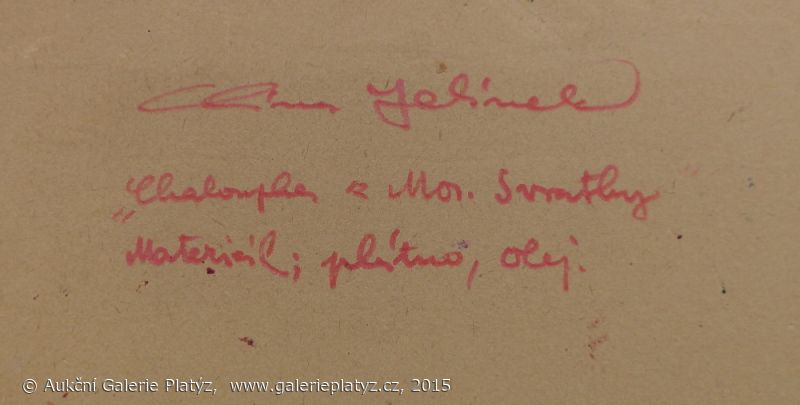 Jelínek
„Chaloupka z Mor. Svratky
Materiál; plátno, olej.
© Aukční Galerie Platýz, www.galerieplatyz.cz, 2015